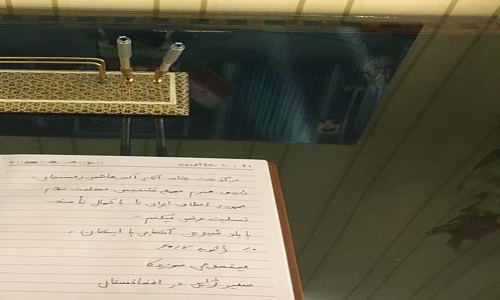 درگذشت جناب آقای اکبر هاشمی رفسنجانی
رئیس محترم مجمع تشخیص مصلحت نظام
جمهوری اسلامی ایران را با کمال تأسف
تسلیت عرض میکنم -
با یاد شیرین آشنایی با ایشان -
میتسوجی سوزوکا
سفیر ژاپن در افغانستان